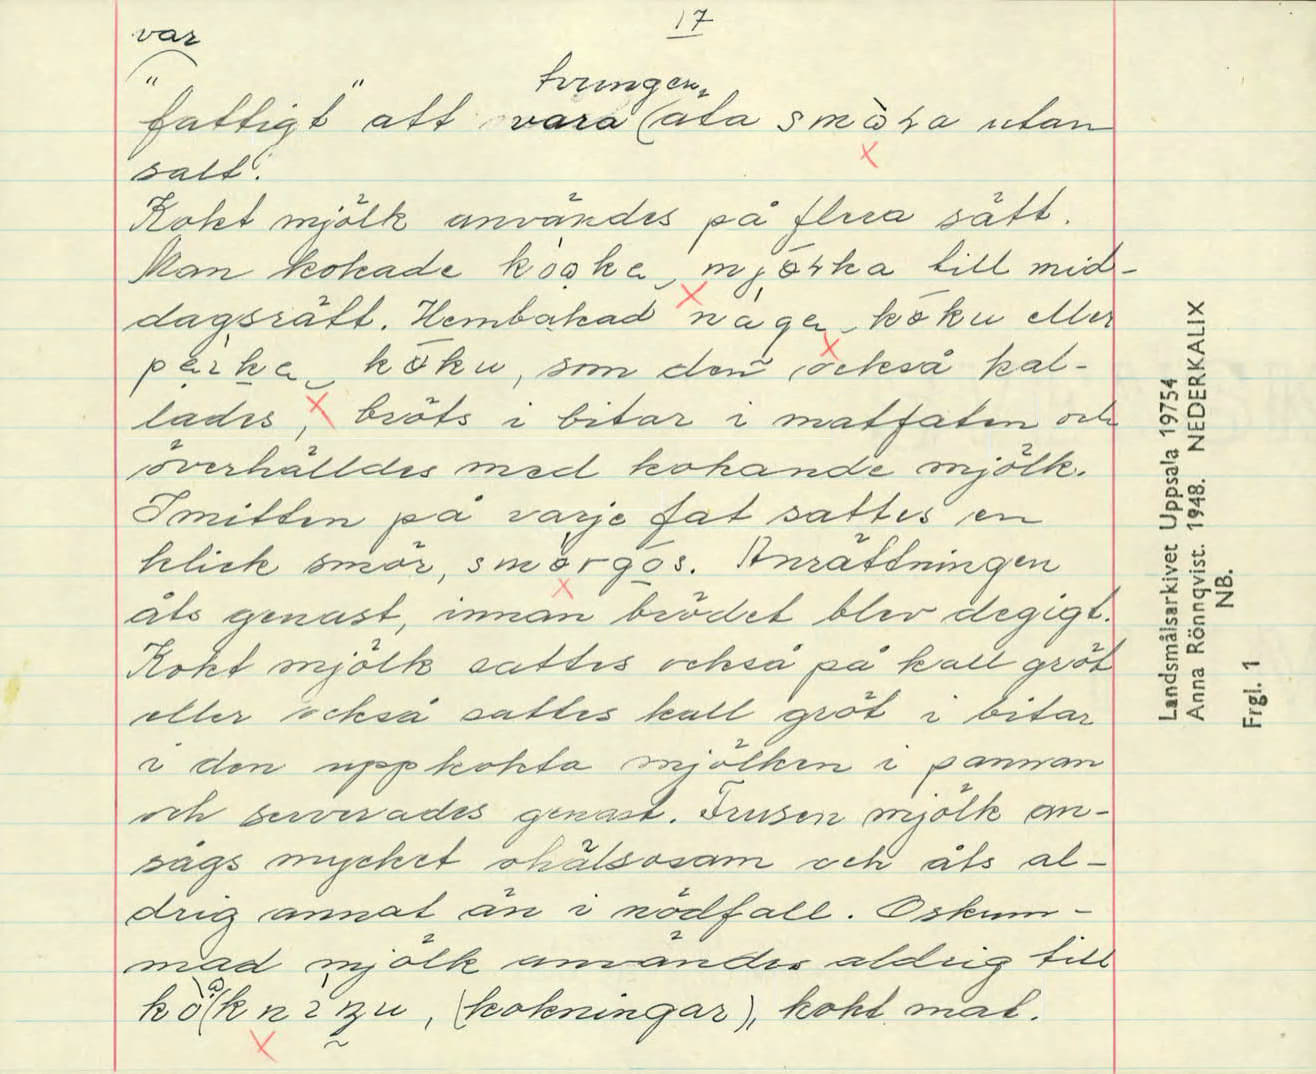 17
var
tvungen
"fattigt" att vara äta utan
salt.
Kokt mjölk användes på flera sätt.
Man kokade till mid-
dagsrätt. Hembakad eller
som den också kal-
lades, bröts i bitar i matfaten och
överhälldes med kokande mjölk.
I mitten på varje fat sattes en
klick smör, smörgós. Anrättningen
åts genast, innan brödet blev degigt.
Kokt mjölk sattes också på kall gröt
eller också sattes kall gröt i bitar
i den uppkokta mjölken i pannan
och serverades genast. Frusen mjölk an-
sågs mycket ohälsosam och åts al-
drig annat än i nödfall. Oskum-
mad mjölk användes aldrig till
(kokningar), kokt mat.
Landsmålsarkivet Uppsala 19754
Anna Rönnqvist. 1948. NEDERKALIX
NB.
Frgl. 1